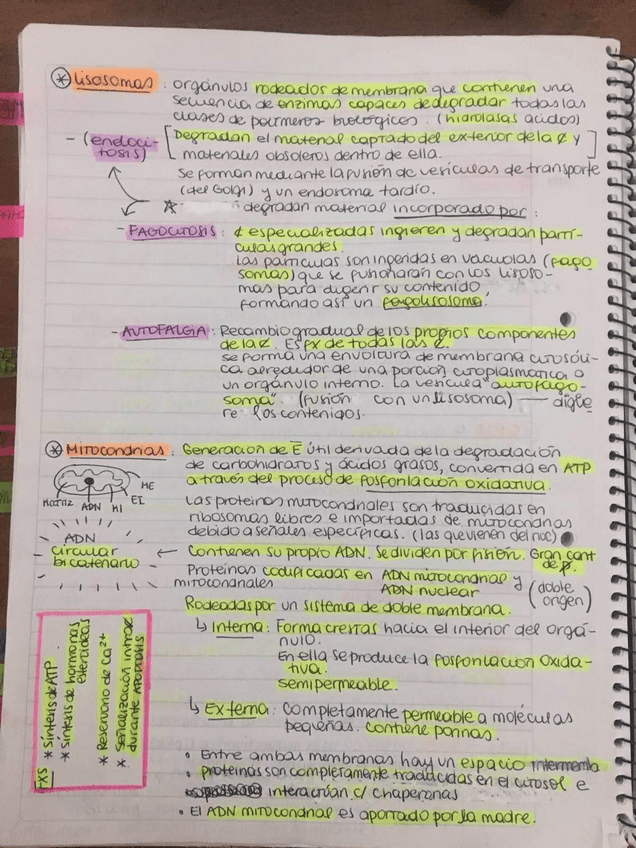 * Lisosomas: orgánulos rodeados de membrana que contienen una
secuencia de enzimas capaces de degradar todas las
clases de polímeros biológicos. (hidrolasas ácidas)
- (endoci-
tosis)
[Degradan el material captado del exterior de la ¢ y]
materiales obsoletos dentro de ella.
Se forman mediante la fusión de vesículas de transporte
(del Golgi) y un endosoma tardío.
degradan material incorporado por:
- FAGOCITOSIS: ¢ especializadas ingieren y degradan partí-
culas grandes.
Las partículas son ingeridas en vacuolas (fago
somas) que se fusionarán con los lisoso-
mas para digerir su contenido
formando así un fagolisosoma.
- AUTOFALGIA: Recambio gradual de los propios componentes
de la ¢. Es FX de todas las ¢.
Se forma una envoltura de membrana citosóli-
ca alrededor de una porción citoplasmática o
un orgánulo interno. La vesícula "autofago-
soma". (fusión con un lisosoma) — digie
re los contenidos.
* Mitocondrias: Generación de E útil derivada de la degradación
de carbohidratos y ácidos grasos, convertida en ATP
a través del proceso de fosforilación oxidativa.
ME
EI
MATRIZ ADN MI
Las proteínas mitocondriales son traducidas en
ribosomas libres e importadas de mitocondrias
debido a señales específicas. (las que vienen del noc)
ADN
circular
bicatenario
← Contienen su propio ADN. Se dividen por fisión. Gran cant
de p.
Proteínas codificadas en ADN mitocondrial y
mitocondriales ADN nuclear
(doble
origen)
Rodeadas por un sistema de doble membrana.
↳ Interna: Forma crestas hacia el interior del orgá-
nulo.
En ella se produce la fosforilación oxida-
tiva.
Semipermeable.
↳ Externa: Completamente permeable a moléculas
pequeñas. Contiene porinas.
FXS
* Síntesis de ATP
* Síntesis de hormonas
esteroideas
* Reservorio de Ca2+
* Señalización
durante APOPTOSIS
• Entre ambas membranas hay un espacio intermemb
• proteínas son completamente traducidas en el citosol e
interactúan c/ chaperonas
• El ADN mitocondrial es aportado por la madre.